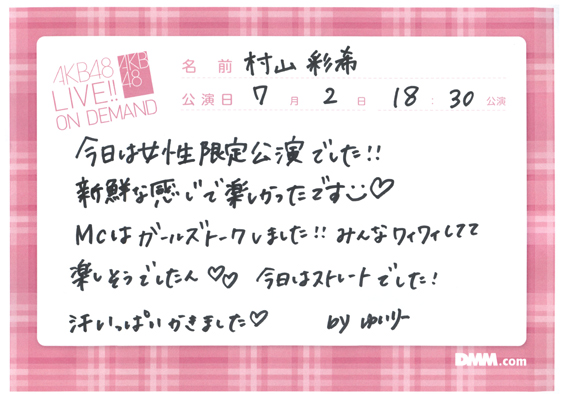 AKB48
LIVE!!
ON DEMAND
AKB
48
名前 村山 彩希
公演日 7月 2日 18:30公演
今日は女性限定公演でした!!
新鮮な感じで楽しかったです♡
MCはガールズトークしました!! みんなワイワイしてて
楽しそうでしたん♡♡ 今日はストレートでした!
汗いっぱいかきました♡ by ゆいりー
DMM.com